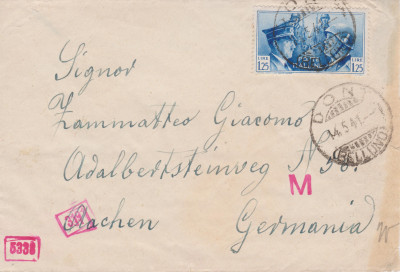 LIRE
1.25
LIRE
1.25
POSTE
ITALIANE
DONT
14.5.41
(BELLUNO)
Signor
Zammatteo Giacomo
Adalbertsteinweg N
M
Aachen
Germania
5338